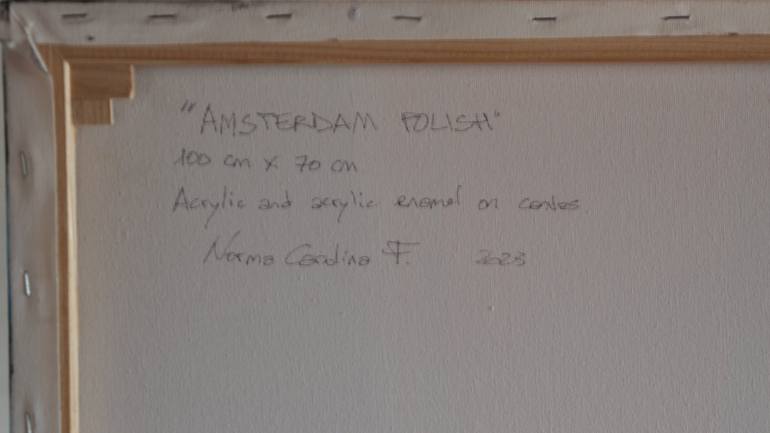 "AMSTERDAM POLISH"
100 cm x 70 cm
Acrylic and acrylic enamel on
Norma Carolina F. 2023